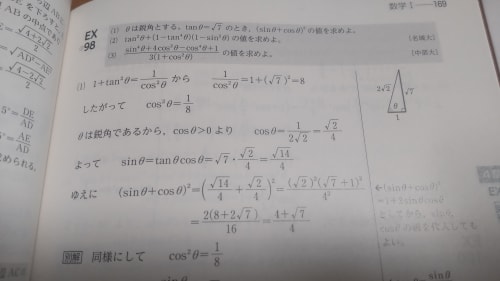 数学Ⅰ——169
EX
98
(1) θは鋭角とする。tanθ=√7 のとき,(sinθ+cosθ)² の値を求めよ。
(2) tan²θ+(1-tan⁴θ)(1-sin²θ) の値を求めよ。
(3) (sin⁴θ+4cos²θ-cos⁴θ+1)/(3(1+cos²θ)) の値を求めよ。
[中部大]
(1) 1+tan²θ=1/cos²θ から 1/cos²θ=1+(√7)²=8
したがって cos²θ=1/8
θは鋭角であるから,cosθ>0 より cosθ=1/(2√2)=√2/4
よって sinθ=tanθcosθ=√7・√2/4=√14/4
ゆえに (sinθ+cosθ)²=(√14/4+√2/4)²=(√2)²(√7+1)²/4²
=2(8+2√7)/16=(4+√7)/4
別解 同様にして cos²θ=1/8
2√2
√7
θ
1
←(sinθ+cosθ)²
=1+2sinθcosθ